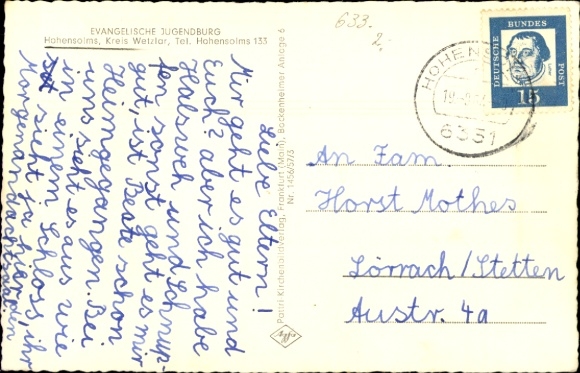 EVANGELISCHE JUGENDBURG
Hohensolms, Kreis Wetzlar, Tel. Hohensolms 133
633.
Liebe Eltern!
Mir geht es gut und
Euch? aber ich habe
Halsweh und Schnup-
fen sonst geht es mir
gut, ist Beate schon
Heimgegangen. Bei
uns sieht es aus wie
in einem Schloss, ihr
seht ja hier
Morgenandacht
Patri Kirchenbildverlag, Frankfurt (Main), Bockenheimer Anlage 6
Nr. 1456/57/3
HOHENSOLMS
6331
DEUTSCHE BUNDES POST
15
An Fam.
Horst Mothes
Lörrach/Stetten
Austr. 4a